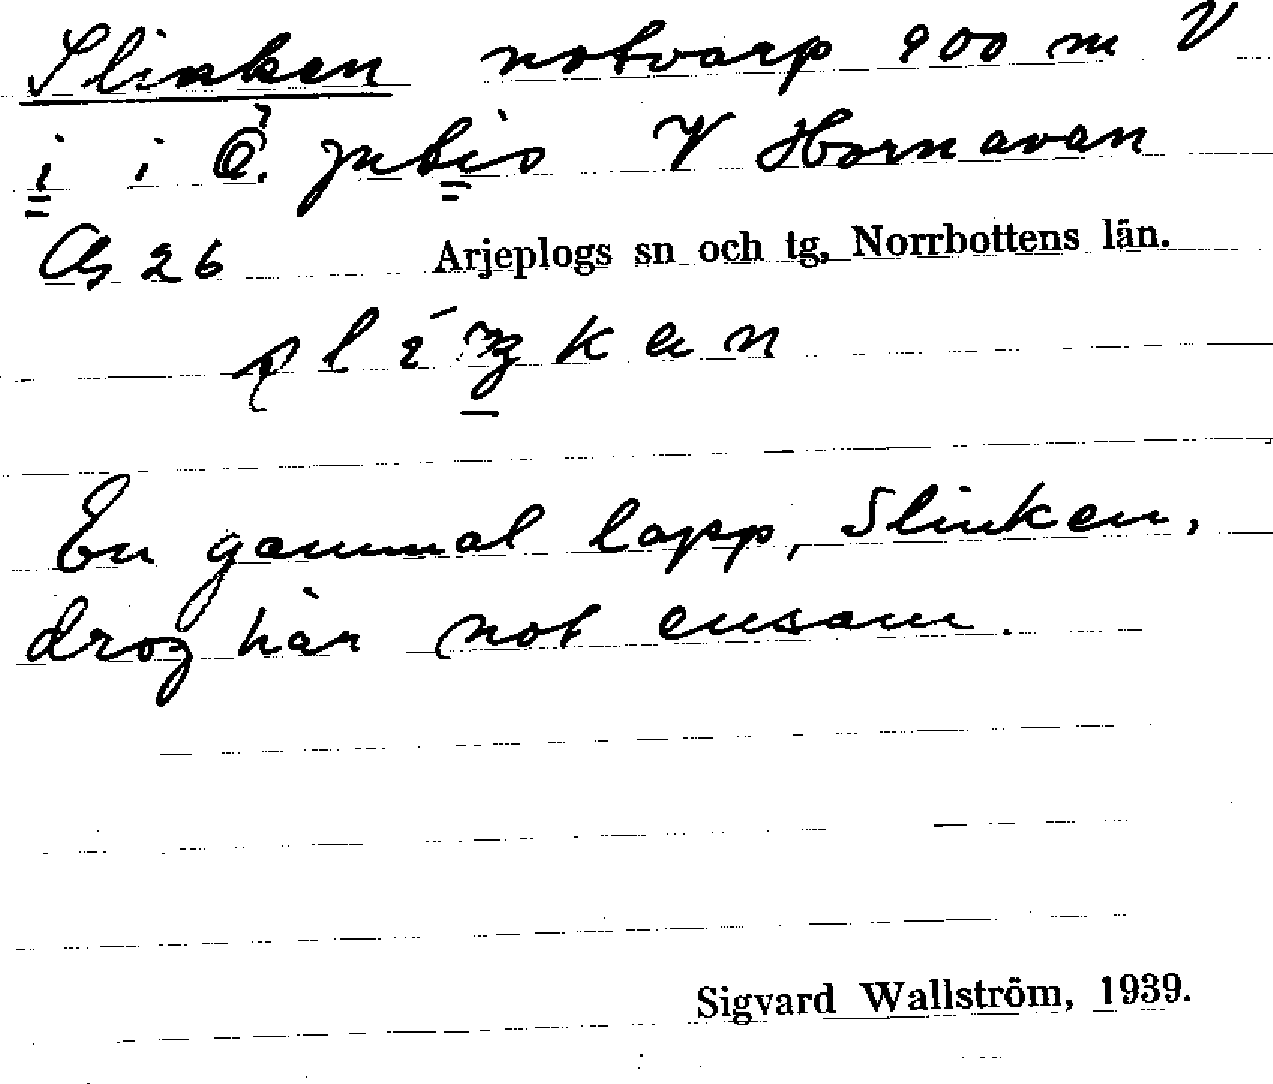 Slinken notvarp 900 m V
i i Ö. jutis V Hornavan
26 Arjeplogs sn och tg, Norrbottens län.
En gammal lapp, Slinken,
drog här not ensam.
Sigvard Wallström, 1939.